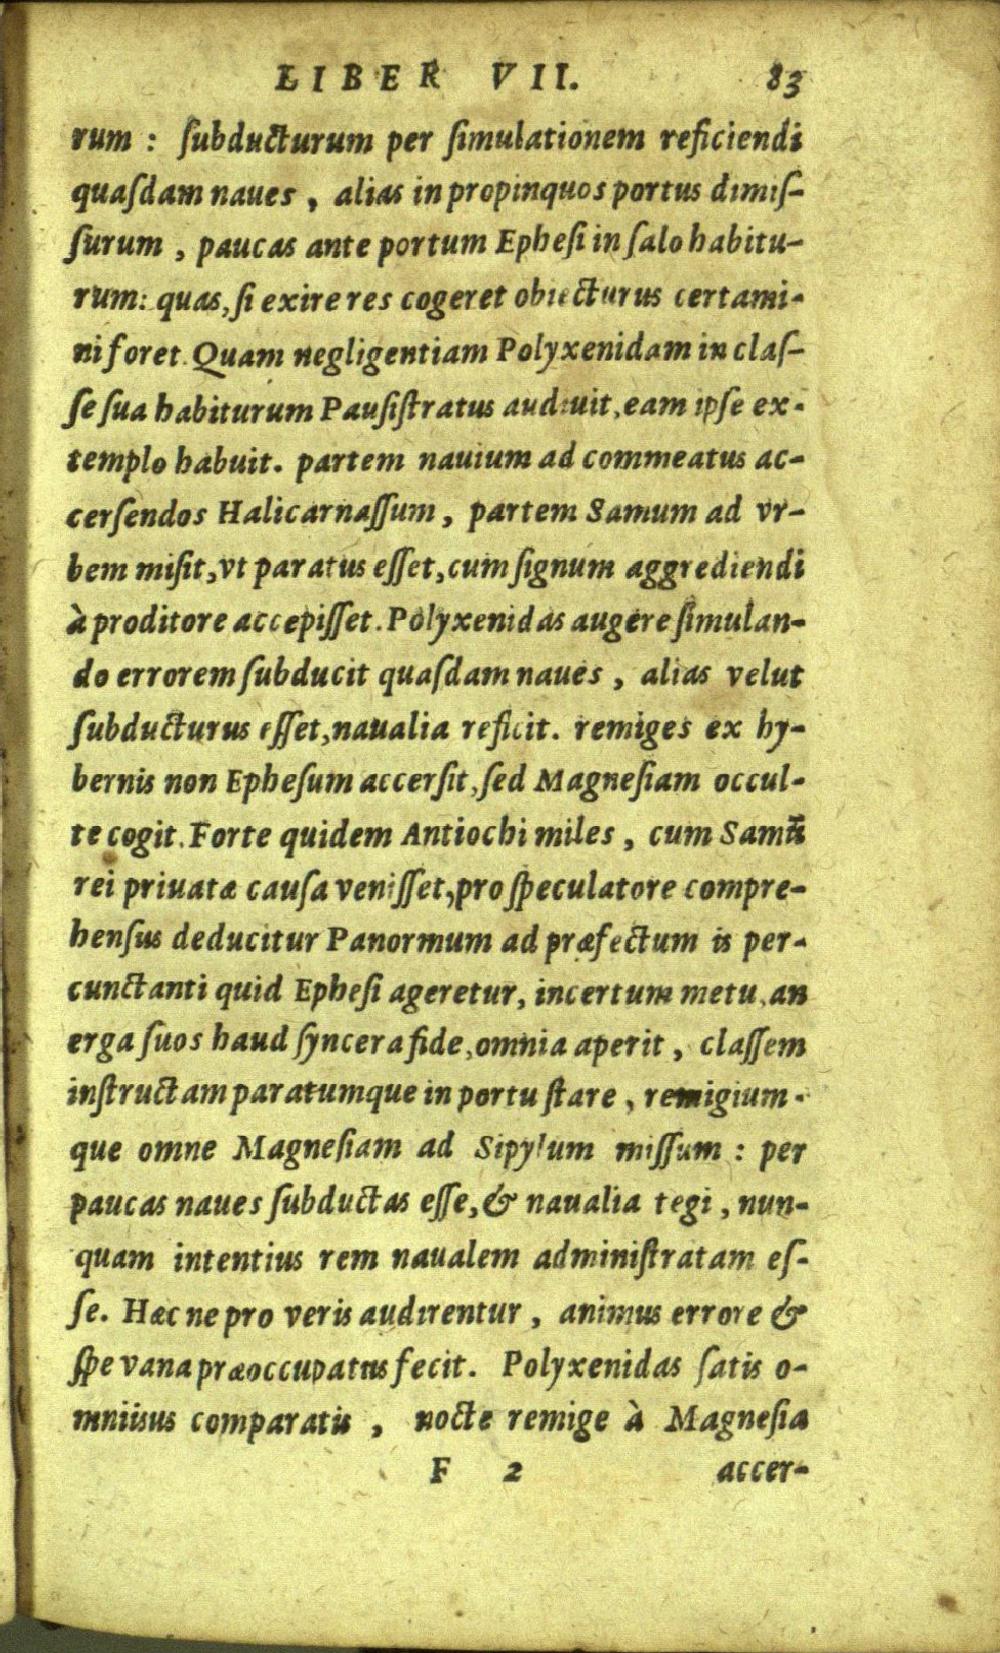 LIBER VII. 83
rum : ſubducturum per ſimulationem reficiendi
quaſdam naues , alias in propinquos portus dimiſ-
ſurum , paucas ante portum Epheſi in ſalo habitu-
rum: quas, ſi exire res cogeret obiecturus certami-
ni foret. Quam negligentiam Polyxenidam in claſ-
ſe ſua habiturum Pauſiſtratus audiuit, eam ipſe ex-
templo habuit. partem nauium ad commeatus ac-
cerſendos Halicarnaſſum , partem Samum ad vr-
bem miſit, vt paratus eſſet, cum ſignum aggrediendi
à proditore accepiſſet. Polyxenidas augere ſimulan-
do errorem ſubducit quaſdam naues , alias velut
ſubducturus eſſet, naualia reficit. remiges ex hy-
bernis non Epheſum accerſit, ſed Magneſiam occul-
te cogit. Forte quidem Antiochi miles , cum Samū
rei priuatæ cauſa veniſſet, pro ſpeculatore compre-
henſus deducitur Panormum ad præfectum is per-
cunctanti quid Epheſi ageretur, incertum metu, an
erga ſuos haud ſyncera fide, omnia aperit , claſſem
inſtructam paratumque in portu ſtare , remigium-
que omne Magneſiam ad Sipylum miſſum : per
paucas naues ſubductas eſſe, & naualia tegi , nun-
quam intentius rem naualem adminiſtratam eſ-
ſe. Hæc ne pro veris audirentur , animus errore &
ſpe vana præoccupatus fecit. Polyxenidas ſatis o-
mniisus comparatis , nocte remige à Magneſia
F 2 accer-